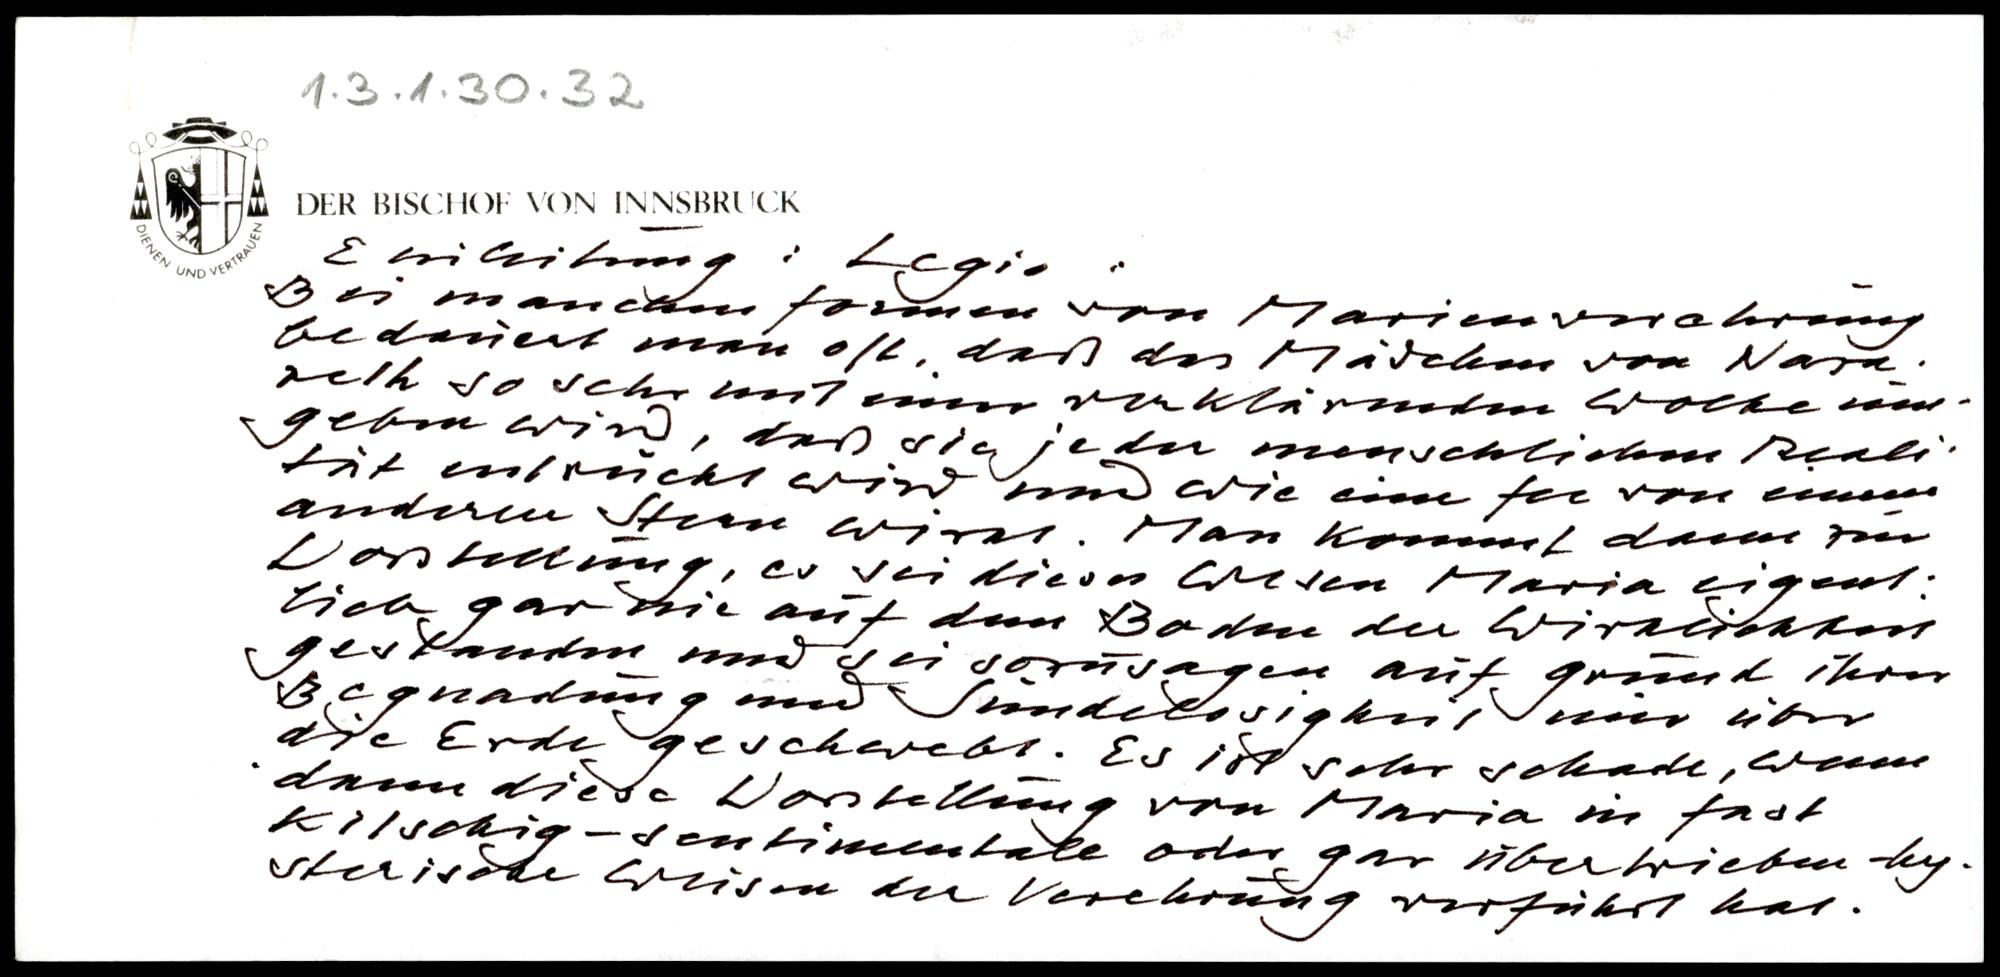 1.3.1.30.32
DER BISCHOF VON INNSBRUCK
DIENEN UND VERTRAUEN
Einleitung: Legio:
Bei manchen Formen von Marienverehrung
bedauert man oft, daß das Mädchen von Naza-
reth so sehr mit einer verklärenden Wolke um-
geben wird, daß sie jeder menschlichen Reali-
tät entrückt wird und wie eine Fee von einem
anderen Stern wirkt. Man kommt dann zur
Vorstellung, es sei dieses Wesen Maria eigent-
lich gar nie auf dem Boden der Wirklichkeit
gestanden und sei sozusagen auf Grund ihrer
Begnadung und Sündelosigkeit nur über
die Erde geschwebt. Es ist sehr schade, wenn
dann diese Vorstellung von Maria in fast
kitschig-sentimentale oder gar übertrieben-hy-
sterische Weisen der Verehrung verführt hat.